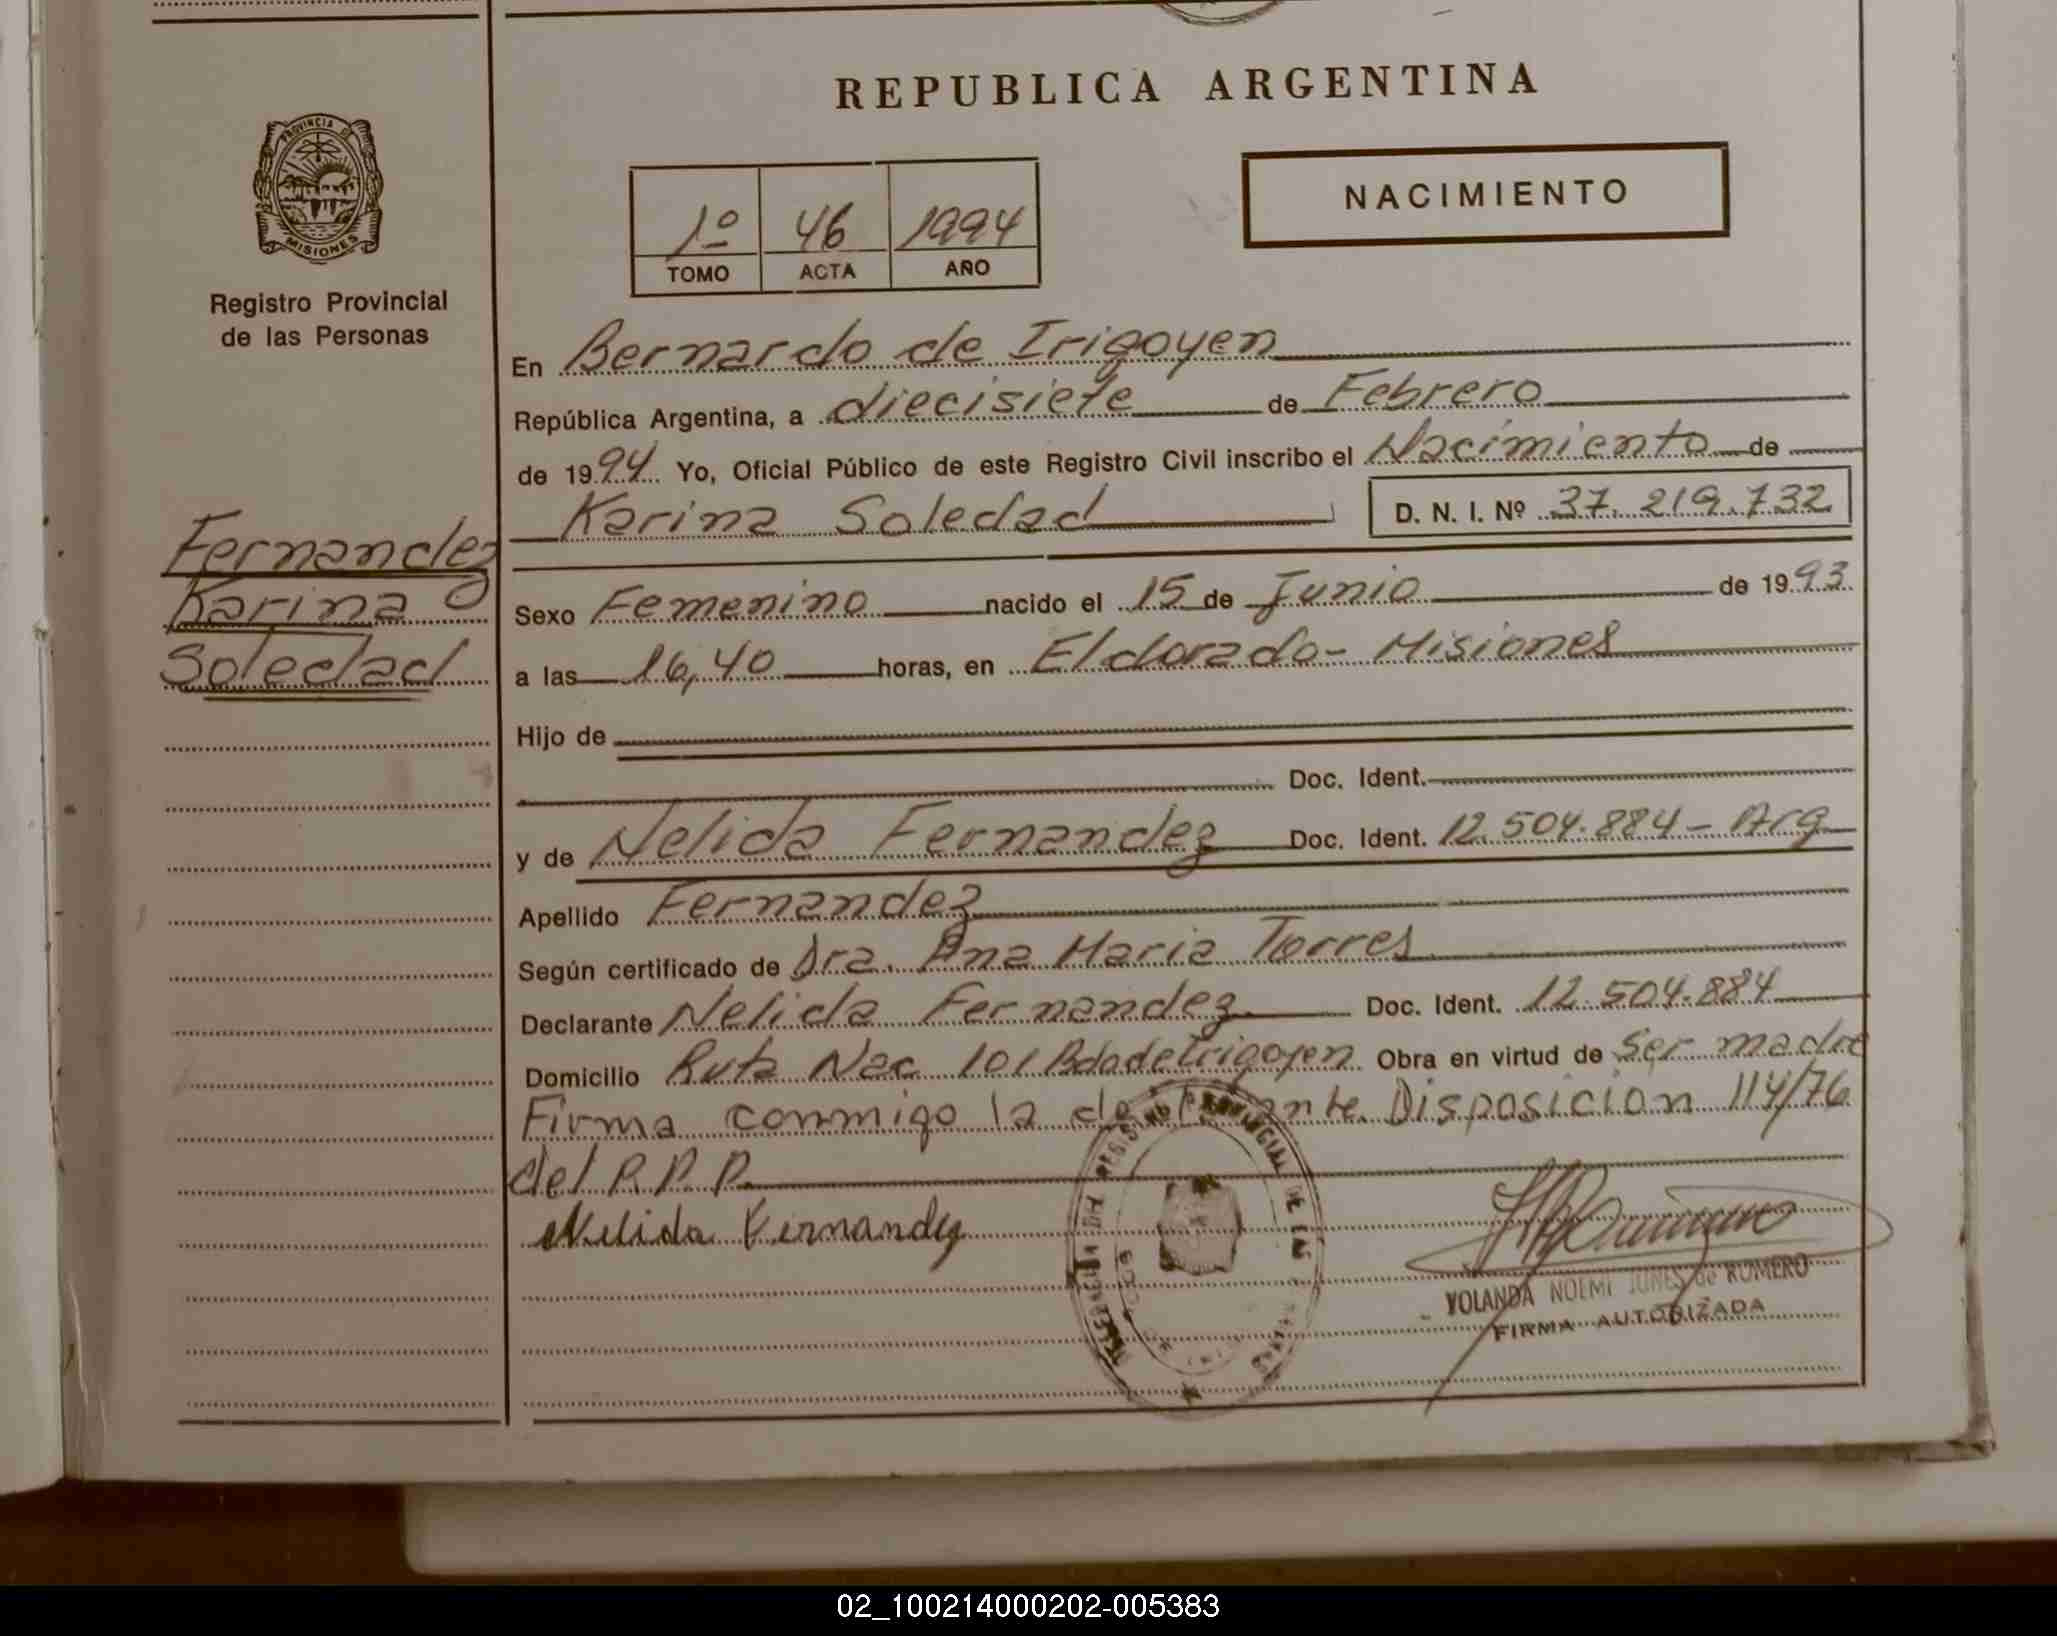 REPUBLICA ARGENTINA
PROVINCIA DE
MISIONES
Registro Provincial
de las Personas
NACIMIENTO
1º 46 1994
TOMO ACTA AÑO
En Bernardo de Irigoyen
República Argentina, a diecisiete de Febrero
de 1994 Yo, Oficial Público de este Registro Civil inscribo el Nacimiento de
Karina Soledad D. N. I. Nº 37.219.732
Fernandez
Karina
Soledad
Sexo Femenino nacido el 15 de Junio de 1993
a las 16,40 horas, en Eldorado - Misiones
Hijo de
Doc. Ident.
y de Nelida Fernandez Doc. Ident. 12.504.884 - Arg
Apellido Fernandez
Según certificado de Dra. Ana Maria Torres
Declarante Nelida Fernandez Doc. Ident. 12.504.884
Domicilio Ruta Nac 101 Bdo de Irigoyen Obra en virtud de ser madre
Firma conmigo la Disposicion 114/76
del R.P.P.
Nelida Fernandez
REGISTRO PROVINCIAL DE LAS
YOLANDA NOEMI JUNES de ROMERO
FIRMA AUTORIZADA
02_100214000202-005383